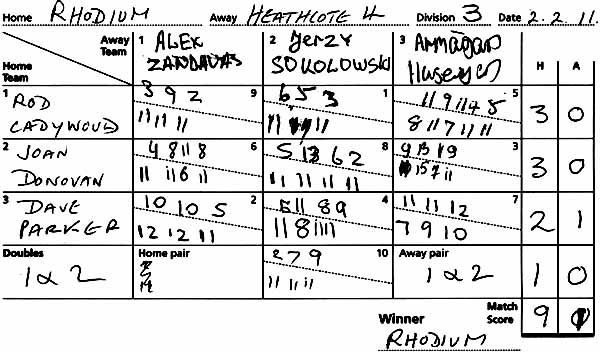 Home RHODIUM Away HEATHCOTE 4 Division 3 Date 2.2.11.
Away Team 1 ALEX 2 JERZY 3
Home Team SOKOLOWSKI H A
1 ROD 3 9 2 9 6 5 3 1 5
CADYWOULD 11 11 11 8 11 7 11 11 3 0
2 JOAN 4 8 11 8 6 8 3 0
DONOVAN 11 11 6 11 11 11 11 11
3 DAVE 10 10 5 2 6 11 8 9 4 11 11 12 7 2 1
PARKER 12 12 11 11 8 11 11 7 9 10
Doubles Home pair 2 7 9 10 Away pair
1 & 2 11 11 11 1 & 2 1 0
Match Score 9
Winner
RHODIUM